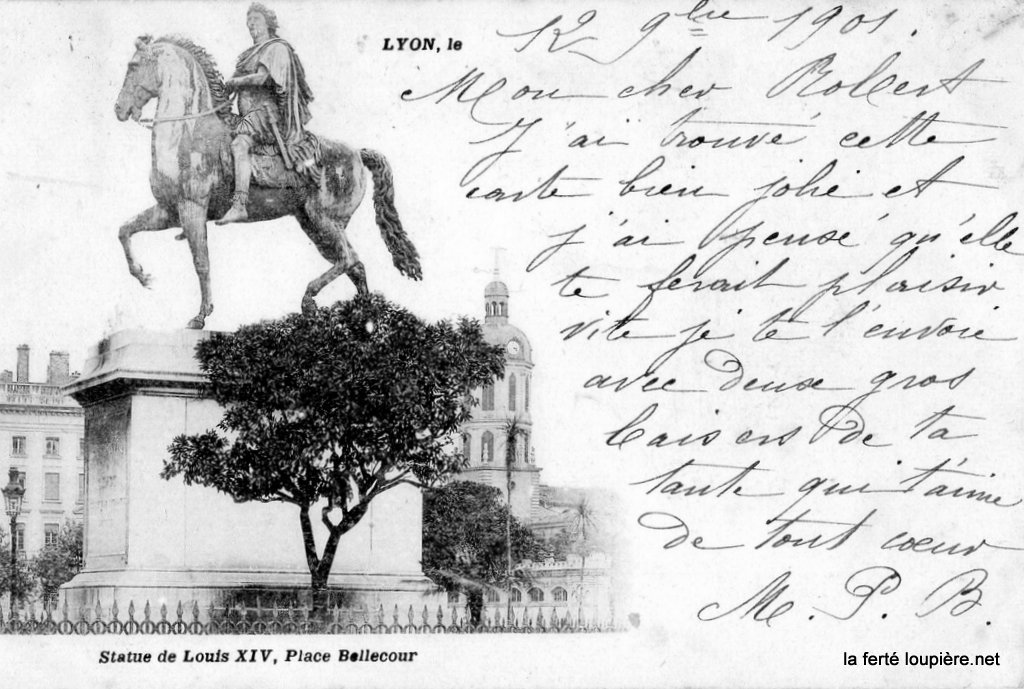 LYON, le
12 9bre 1901.
Mon cher Robert
J'ai trouvé cette
carte bien jolie et
j'ai pensé qu'elle
te ferait plaisir
vite je te l'envoie
avec deux gros
baisers de ta
tante qui t'aime
de tout cœur
M. P. B.
Statue de Louis XIV, Place Bellecour
la ferté loupière.net